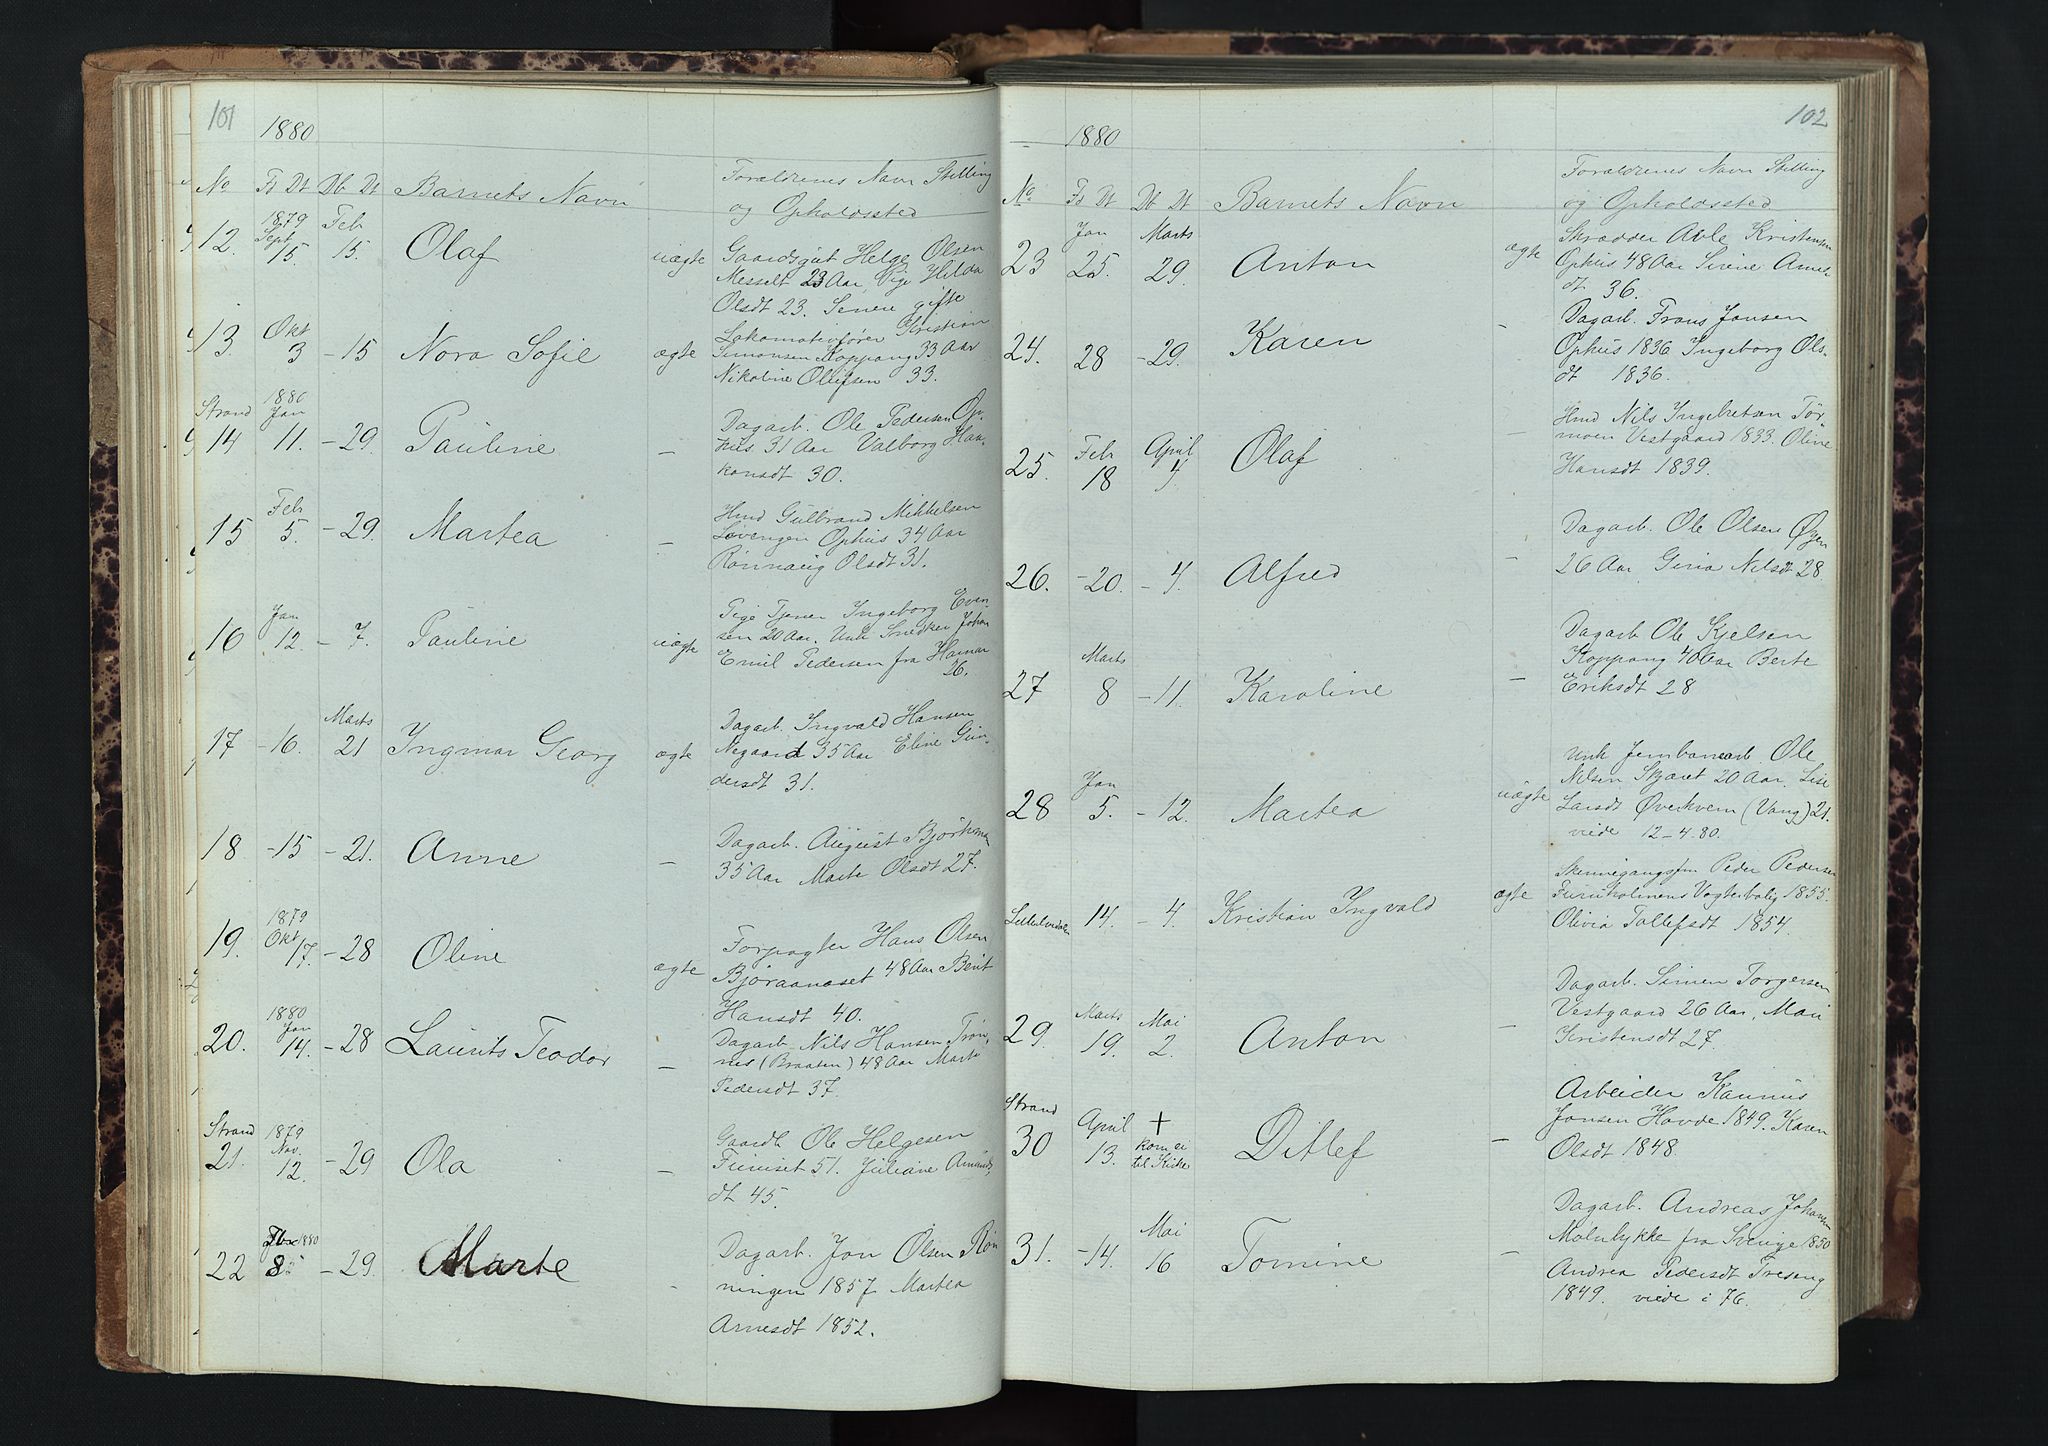 101
1880
No Fd Dt Db Dt Barnets Navn Forældrenes Navn Stilling
og Opholdssted
12. 1879 Sept 15. Feb 15. Olaf uægte Gaardsgut Helge Olsen
Messelt 23 Aar, Pige Hilda
Olsdt 23. Senere gifte
13. Okt 3 - 15 Nora Sofie ægte Lokomotivfører Kristian
Simonsen Koppang 33 Aar
Nikoline Olufsen 33.
Strand
14 1880 Jan 11. - 29. Pauline - Dagarb. Ole Pedersen Op-
hus 31 Aar Valborg Haa-
konsdt 30.
15 Feb 5. - 29. Martea - Hmd Gulbrand Mikkelsen
Løvengen Ophus 34 Aar
Rønnaug Olsdt 31.
16 Jan 12. - 7. Pauline uægte Pige Tjener Ingeborg Even-
sen 20 Aar. Unk Snedker Johan
Emil Pedersen fra Hamar
26.
17 - 16. Marts 21 Ingmar Georg ægte Dagarb Ingvald Hansen
Negaard 35 Aar Eline Gun-
dersdt 31.
18 - 15 - 21. Anne - Dagarb. August Bjørkman
35 Aar Marte Olsdt 27.
19. 1879 Okt 17. - 28 Oline ægte Forpagter Hans Olsen
Bjøraanæset 48 Aar Berit
Hansdt 40.
20. 1880 Jan 14. - 28 Laurits Teodor - Dagarb Nils Hansen Trøn-
nes (Braaten) 48 Aar Marte
Pedersdt 37.
Strand
21. 1879 Nov. 12. - 29 Ola - Gaardb Ole Helgesen
Furuset 51. Juliane Amunds
dt 45.
22 1880 8 - 29. Marte - Dagarb. Jon Olsen Røn
ningen 1857 Martea
Arnesdt 1852.
102
1880
No Fd Dt Db Dt Barnets Navn Forældrenes Navn Stilling
og Opholdssted
23 Jan 25. Marts 29. Anton ægte Skrædder Avle Kristensen
Ophus 48 Aar Sirine Arnes
dt 36.
24. 28 - 29. Karen - Dagarb. Frans Jansen
Ophus 1836 Ingeborg Ols-
dt 1836.
25. Feb 18 April 4 Olaf - Hmd Nils Ingebretsen Tør
moen Vestgaard 1833. Oline
Hansdt 1839.
26. - 20. - 4. Alfred - Dagarb. Ole Olsen Øyen
26 Aar Gina Nilsdt 28.
27 Marts 8 - 11. Karoline - Dagarb Ole Kjelsen
Koppang 40 Aar Berte
Eriksdt 28
28 Jan 5. - 12. Martea uægte Unk Jernbanearb Ole
Nilsen Skjæret 20 Aar. Lise
Larsdt Øverkvern (Vang) 21.
viede 12-4.80.
14. - 4. Kristian Ingvald ægte Skinnegangsfm Peder Pedersen
Furuholmens Vogterbolig 1855.
Olivia Tollefsdt 1854.
29. Marts 19. Mai 2. Anton - Dagarb. Simen Torgersen
Vestgaard 26 Aar, Mari
Kristensdt 27.
Strand
30 April 13. + kom ei
til Kirke Ditlef - Arbeider Rasmus
Jonsen Hovde 1849. Karen
Olsdt 1848.
31. - 14. Mai 16 Tomine - Dagarb. Andreas Johansen
Mølnlykke fra Sverige 1850
Andrea Pedersdt Treseng
1849. viede i 76.